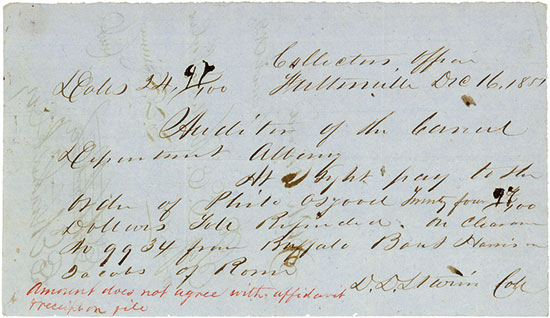 Collectors Office
Dolls 24 97/100 Fultonville Dec 16, 185
Auditor of the Canal
Department Albany
At Sight pay to the
order of Philo Osgood Twenty four 97/100
Dollars Tolls Refunded on Clearance
No 9934 from Buffalo Boat Harrison
Jacobs of Rome
D. D. Starin Col
Amount does not agree with affidavit
& receipt on file